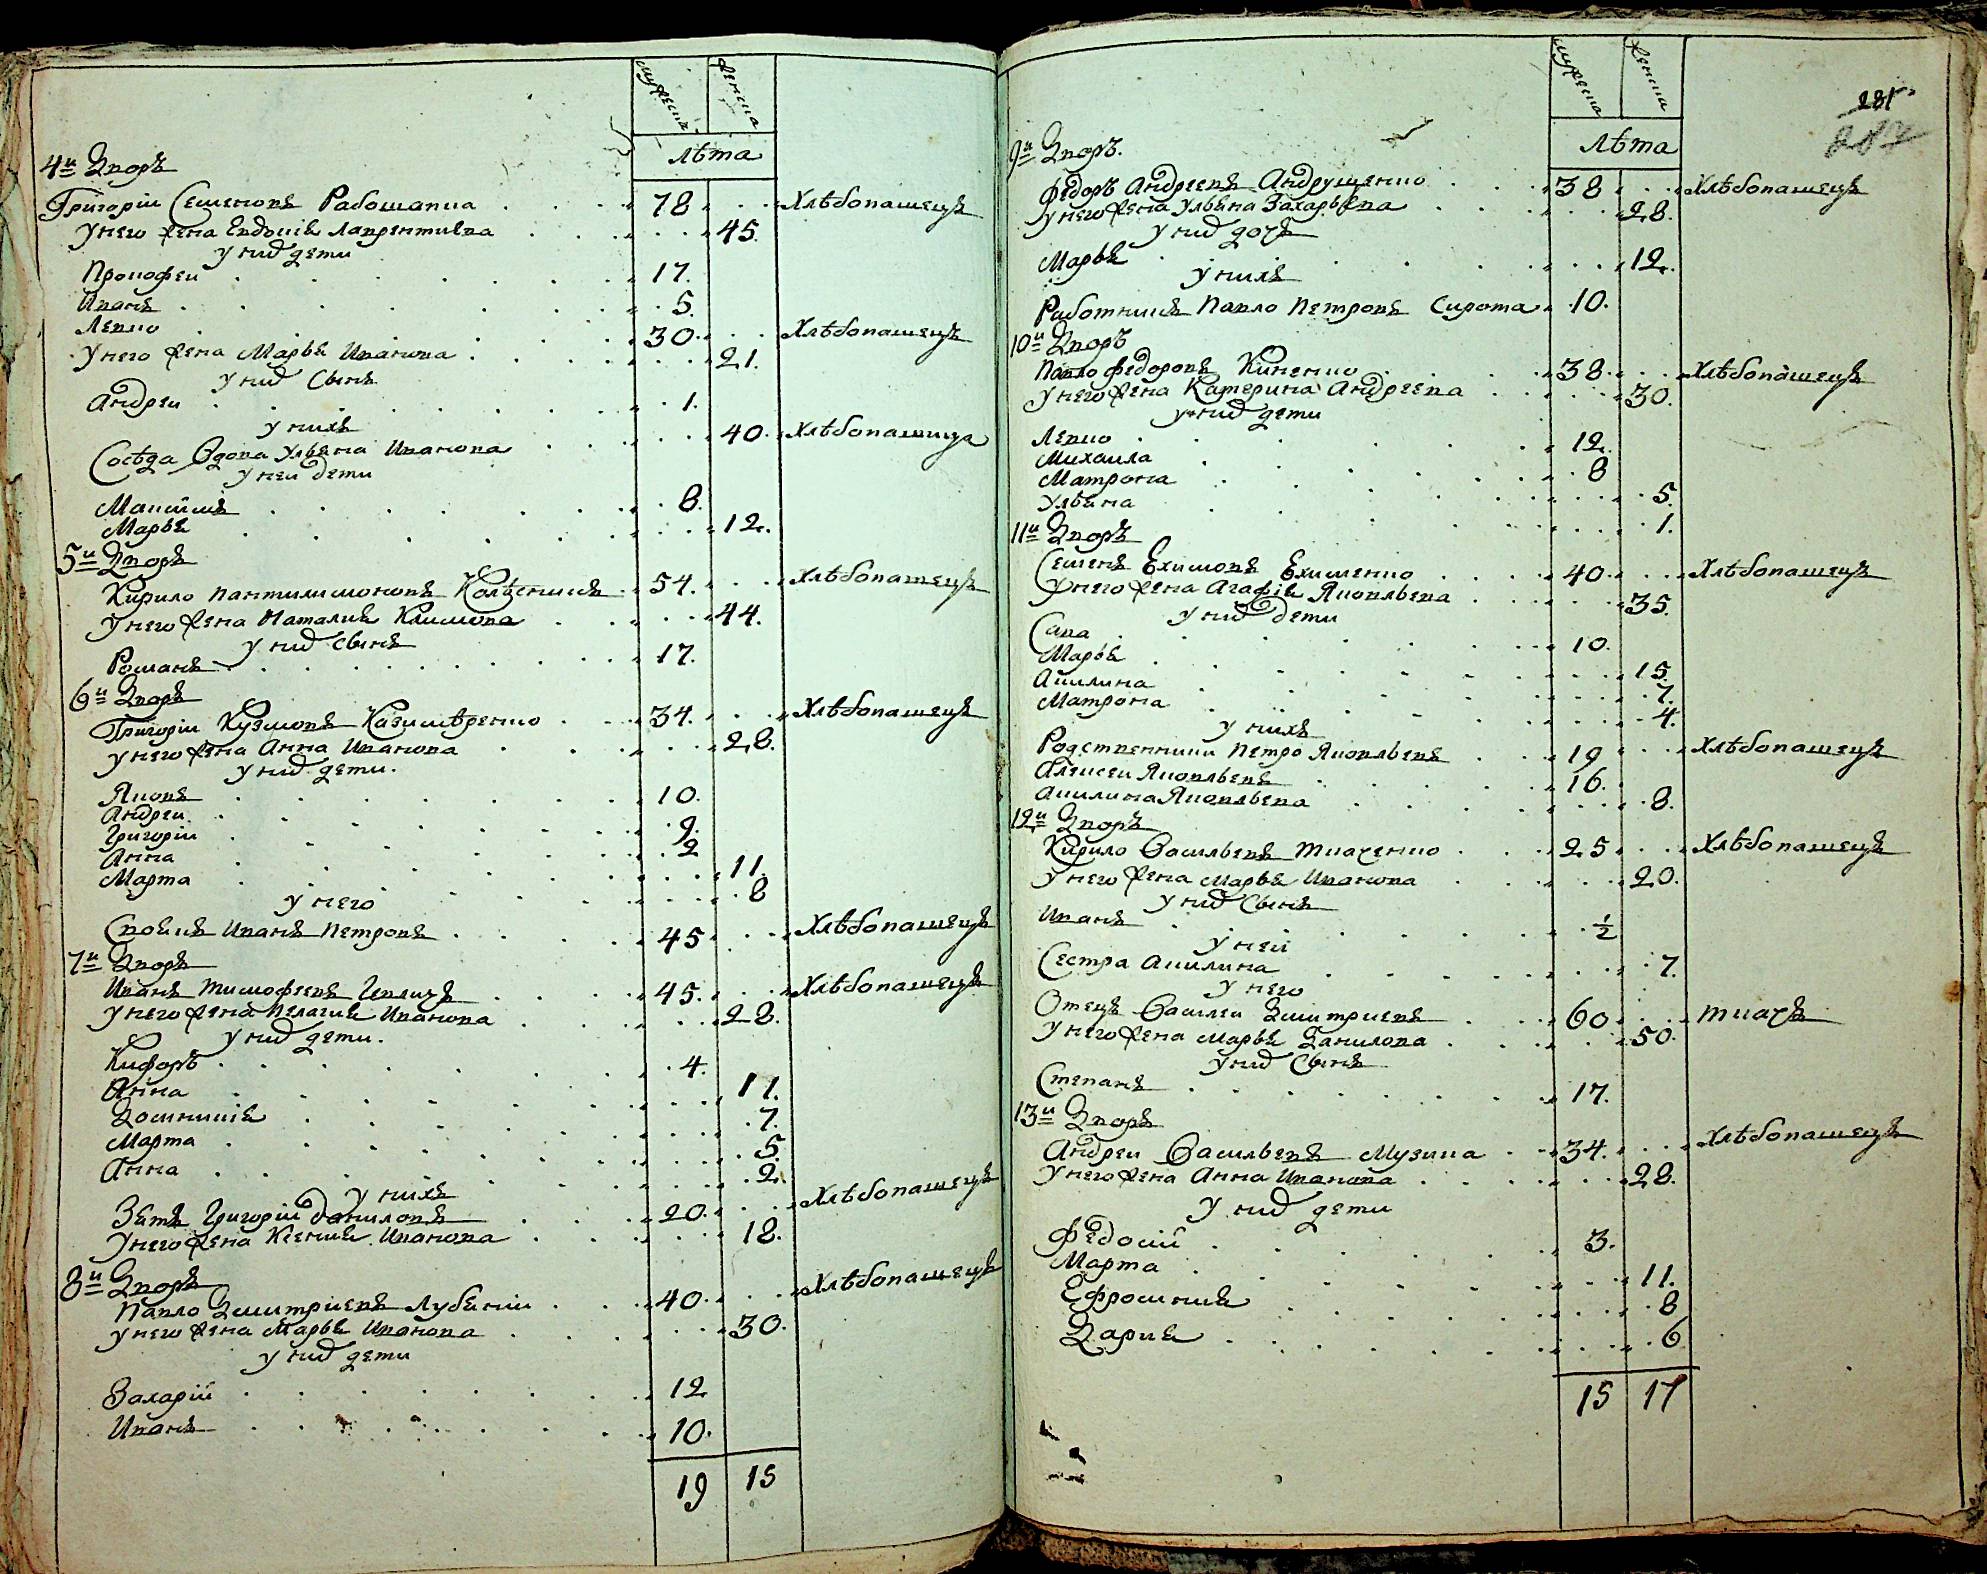 мужеска женска
лѣта
4й Дворъ
Григорій Семеновъ Рабошапка 78 Хлѣбопашецъ
у него жена Евдокія Лаврентиева 45.
у них дети
Прокофеи 17.
Иванъ 5.
Левко 30. Хлѣбопашецъ
у него жена Марья Иванова 21.
у них Сынъ
Андреи 1.
у нихъ
Сосѣда Вдова Ульяна Иванова 40. Хлѣбопашица
у неи дети
Максимъ 8.
Марья 12.
5й Дворъ
Кирило Пантилимоновъ Колѣсникъ 54. Хлѣбопашецъ
у него жена Наталия Климова 44.
у них Сынъ
Романъ 17.
6й Дворъ
Григорій Кузмовъ Казимѣренко 34. Хлѣбопашецъ
у него жена Анна Иванова 28.
у них дети.
Яковъ 10.
Андреи 9.
Григорій 2
Анна 11.
Марта 8
у него
Своякъ Иванъ Петровъ 45 Хлѣбопашецъ
7й Дворъ
Иванъ Тимофеевъ 45. Хлѣбопашецъ
у него жена Пелагия Иванова 28.
у них дети.
Кифоръ 4.
Анна 11.
Домникия 7.
Марта 5.
Анна 2.
у нихъ
Зять Григорій Даниловъ 20. Хлѣбопашецъ
у него жена Ксения Иванова 18.
8й Дворъ
Павло Дмитриевъ Лубяній 40. Хлѣбопашецъ
у него жена Марья Иванова 30.
у них дети
Захарій 12
Иванъ 10.
19 15
мужеска женска
281
287
лѣта
9й Дворъ.
Федоръ Андреевъ Андрущенко 38 Хлѣбопашецъ
у него жена Ульяна Захарьева 28.
у них дочь
Марья 12.
у нихъ
Работникъ Павло Петровъ Сирота 10.
10й Дворъ
Павло Федоровъ Киненко 38. Хлѣбопашецъ
у него жена Катерина Андреева 30.
у них дети
Левко 12.
Михаила 8
Матрона 5.
Ульяна 1.
11й Дворъ
Семенъ Ехимовъ Ехименко 40. Хлѣбопашецъ
у него жена Агафия Яковлева 35.
у них дети
Сава 10.
Марья 15.
Акилина 7.
Матрона 4.
у нихъ
Родственники Петро Яковлевъ 19 Хлѣбопашецъ
Алексеи Яковлевъ 16.
Акилина Яковлева 8.
12й Дворъ
Кирило Васильевъ Ткаченко 25 Хлѣбопашецъ
у него жена Марья Иванова 20.
у них Сынъ
Иванъ ½
у неи
Сестра Акилина 7.
у него
Отецъ Василеи Дмитриевъ 60 Ткачъ
у него жена Марья Данилова 50.
у них Сынъ
Степанъ 17.
13й Дворъ
Андреи Васильевъ Музика 34. Хлѣбопашецъ
у него жена Анна Иванова 28.
у них дети
Федосій 3.
Марта 11.
Ефросиния 8
Дария 6
15 17